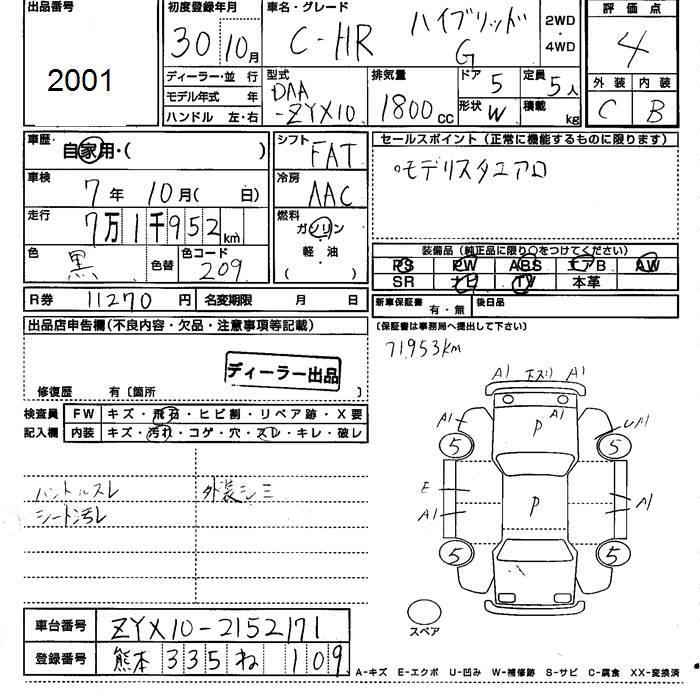 出品番号
2001
初度登録年月
30年10月
車名・グレード
C-HR ハイブリッド G
2WD・4WD
評価点
4
外装 内装
C B
ディーラー・並行
モデル年式 年
ハンドル 左・右
型式
DAA-ZYX10
排気量
1800cc
ドア 5
形状 W
定員 5人
積載 kg
車歴・ 自家用・( )
車検
7年 10月( 日)
走行
7万1千952km
色 黒 色替
色コード 209
シフト FAT
冷房 AAC
燃料
ガソリン
軽・油
( )
セールスポイント(正常に機能するものに限ります)
・モデリスタエアロ
装備品(純正品に限り○をつけてください)
PS PW ABS エアB AW
SR ナビ TV 本革
R券 11270円 名変期限 月 日
新車保証書 有・無 後日品
(保証書は事務局へ提出して下さい)
出品店申告欄(不良内容・欠品・注意事項等記載)
ディーラー出品
修復歴 有〔箇所 〕
71,953km
検査員 FW キズ・飛石・ヒビ割・リペア跡・X要
記入欄 内装 キズ・汚れ・コゲ・穴・スレ・キレ・破レ
ハンドルスレ 外装シミ
シート汚レ
A1 下スリ A1
A1 P A1 UA1
5 5
E
A1 P A1
5 5
スペア
車台番号 ZYX10-2152171
登録番号 熊本 335 ね 109
A-キズ E-エクボ U-凹み W-補修跡 S-サビ C-腐食 XX-変換済